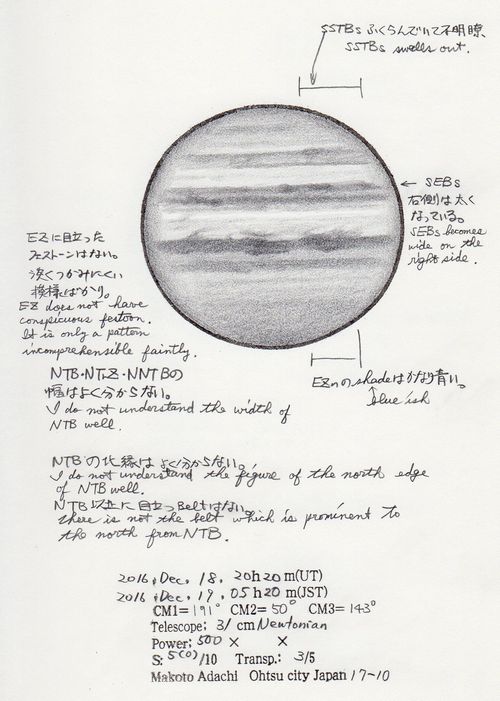 SSTBs ふくらんでいて不明瞭、
SSTBs swells out.
← SEBs
右側は太く
なっている。
SEBs becomes
wide on the
right side.
EZに目立った
フェストーンはない。
淡くつかみにくい
模様ばかり。
EZ does not have
conspicuous festoon.
It is only a pattern
incomprehensible faintly.
EZnのshadeはかなり青い。
blue ish
NTB・NTrZ・NNTBの
幅はよく分からない。
I do not understand the width of
NTB well.
NTBの北縁はよく分からない。
I do not understand the figure of the north edge
of NTB well.
NTB以北に目立つBeltはない。
there is not the belt which is prominent to
the north from NTB.
2016, Dec, 18, 20h20m(UT)
2016, Dec, 19, 05h20m(JST)
CM1=191° CM2=50° CM3=143°
Telescope; 31 cm Newtonian
Power; 500 × ×
S: 5(0)/10 Transp.: 3/5
Makoto Adachi Ohtsu city Japan 17-10